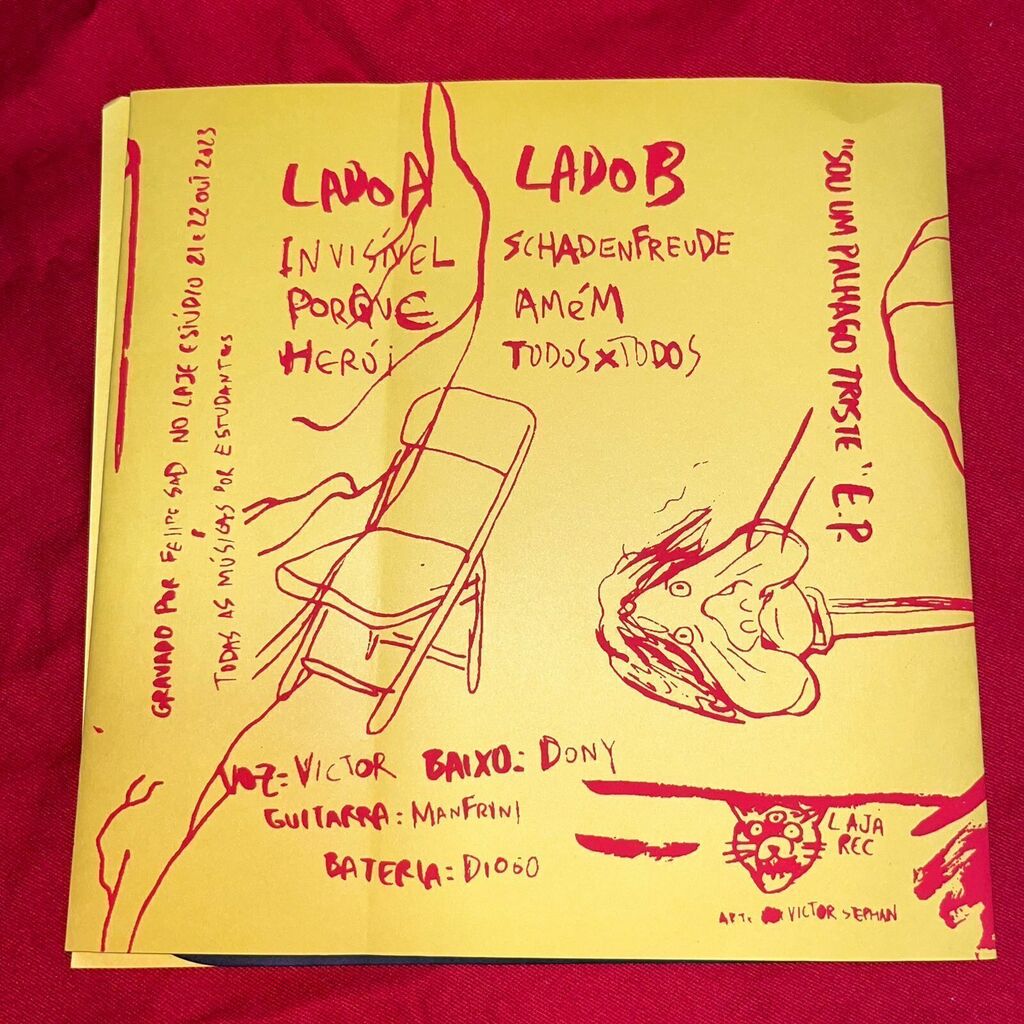 LADO A
INVISÍVEL
PORQUE
HERÓI
LADO B
SCHADENFREUDE
AMÉM
TODOS X TODOS
"SOU UM PALHAÇO TRISTE" E.P.
GRAVADO POR FELIPE SAD NO LAJE ESTÚDIO 21 e 22 OUT 2023
TODAS AS MÚSICAS POR ESTUDANTES
VOZ: VICTOR BAIXO: DONY
GUITARRA: MANFRINI
BATERIA: DIOGO
LAJA
REC
ARTE VICTOR STEPHAN